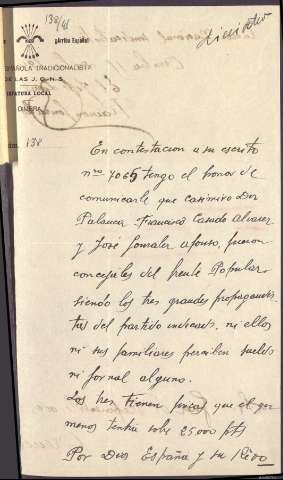 138/41
¡Arriba Español
ESPAÑOLA TRADICIONALISTA
DE LAS J. O. N. S.
JEFATURA LOCAL
138
En contestacion a su escrito
nro 7065 tengo el honor de
comunicarle que Casimiro Dor
Palanca Francisco Casado Alvarez
y José Gonzalez Afonso, fueron
concejales del frente Popular
siendo los tres grandes propagandis
tas del partido indicado, ni ellos
ni sus familiares perciben sueldo
ni jornal alguno.
Los tres tienen fincas que el que
menos tendra sobre 25.000 pts
Por Dios España y su Revo